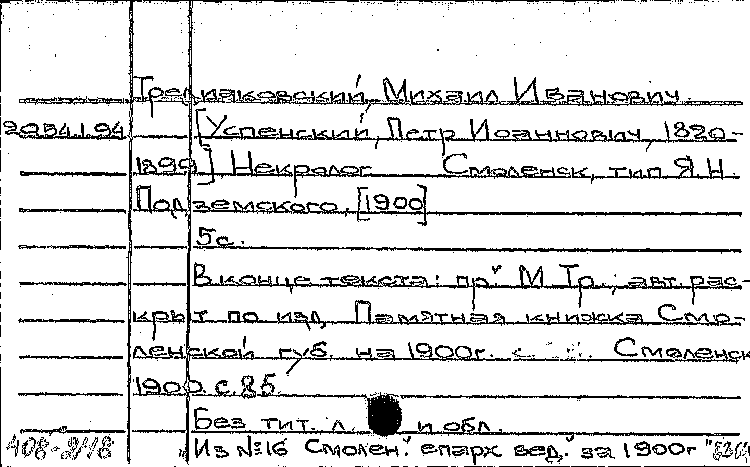 Тредиаковский, Михаил Иванович.
20541.94 [Успенский, Петр Иоаннович, 1820-
1899] Некролог Смоленск, тип Я.Н.
Подземского, [1900]
5с.
В конце текста: пр. М. Тр.; авт. рас-
крыт по изд. Памятная книжка Смо-
ленской губ. на 1900г. Смоленск
1900. с. 85.
Без тит. л. и обл.
408-2418 Из №16 "Смолен. епарх вед." за 1900г